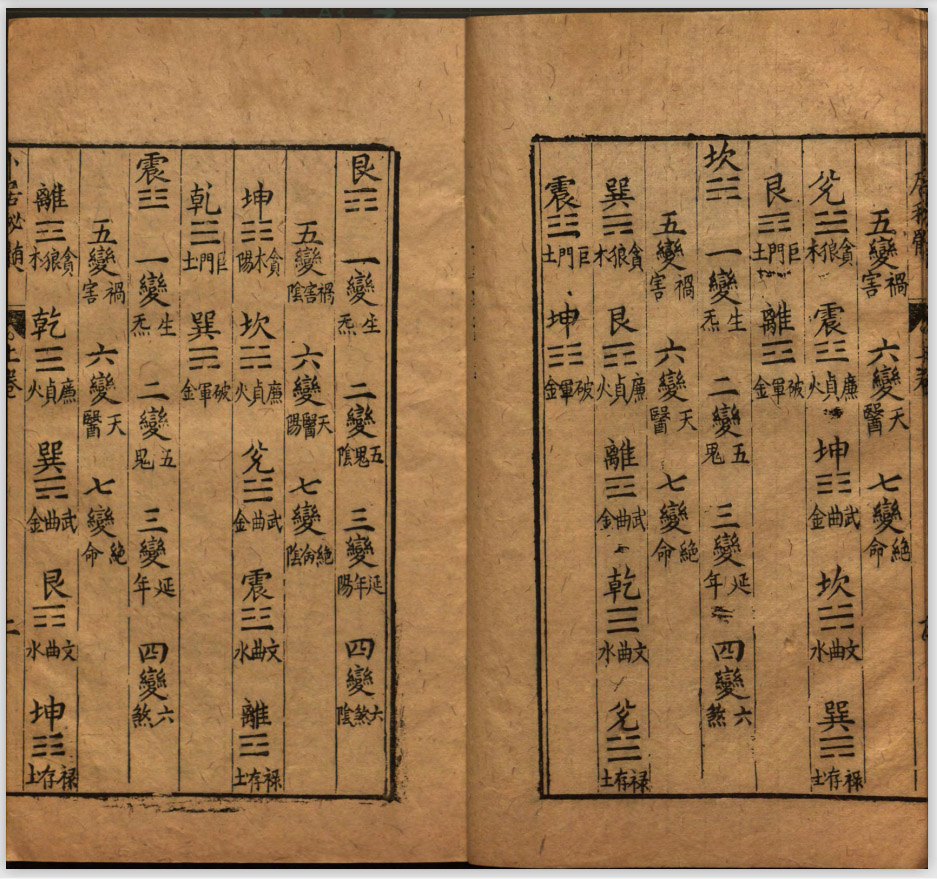 五變禍害 六變天醫 七變絶命
兊☱貪狼木 震☳廉貞火 坤☷武曲金 坎☵文曲水 巽☴禄存土
艮☶巨門土 離☲破軍金
坎☵ 一變生炁 二變五鬼 三變延年 四變六煞
五變禍害 六變天醫 七變絶命
巽☴貪狼木 艮☶廉貞火 離☲武曲金 乾☰文曲水 兊☱禄存土
震☳巨門土 坤☷破軍金
艮☶ 一變生炁 二變五鬼陰 三變延年陽 四變六煞陰
五變禍害陰 六變天醫陽 七變絶陰
坤☷貪木陽 坎☵廉貞火 兊☱武曲金 震☳文曲水 離☲禄存土
乾☰巨門土 巽☴破軍金
震☳ 一變生炁 二變五鬼 三變延年 四變六煞
五變禍害 六變天醫 七變絶命
離☲貪狼木 乾☰廉貞火 巽☴武曲金 艮☶文曲水 坤☷禄存土